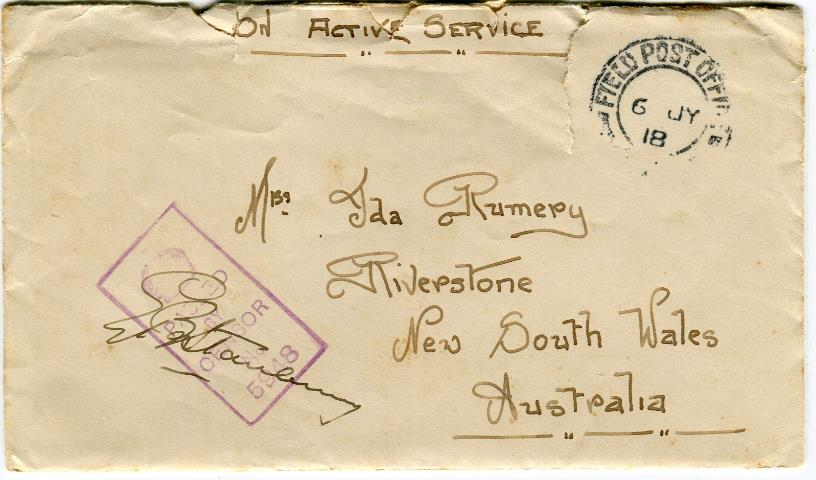 ON ACTIVE SERVICE
FIELD POST OFFICE
6 JY
18
Miss Ida Rumery
Riverstone
New South Wales
Australia
PASSED
BY
CENSOR
No
5948